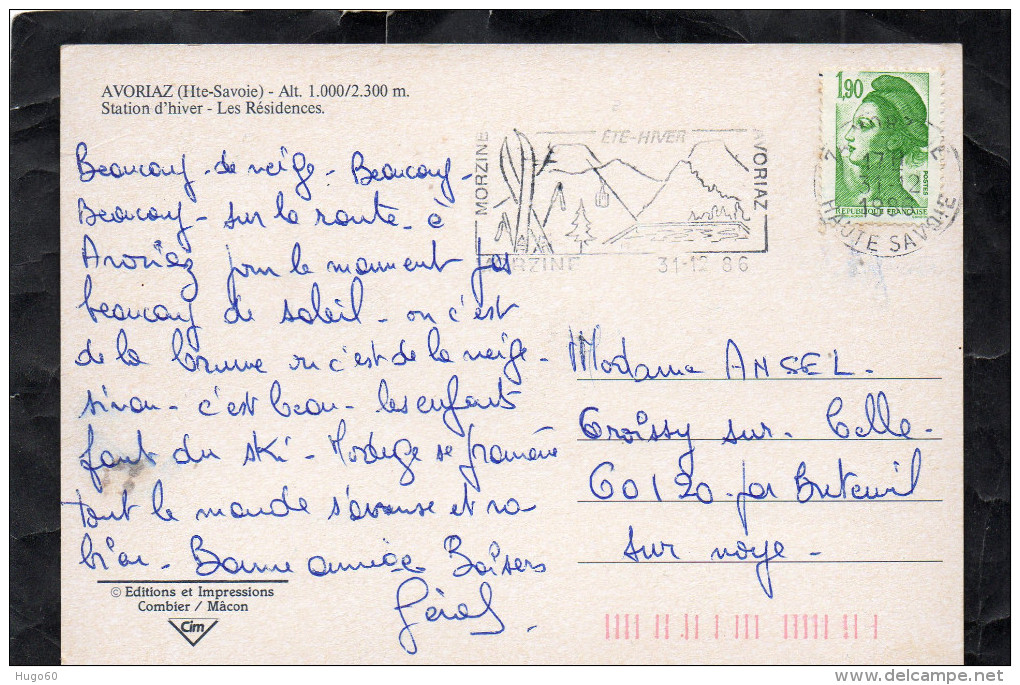 AVORIAZ (Hte-Savoie) - Alt. 1.000/2.300 m.
Station d'hiver - Les Résidences.
Beaucoup - de neige - Beaucoup -
Beaucoup - sur la route - à
Avoriaz pour le moment pas
beaucoup de soleil - ou c'est
de la brume ou c'est de la neige -
sinon - c'est beau - les enfants
font du ski - se promène
tout le monde s'amuse et va
bien - Bonne année Baisers
© Editions et Impressions
Combier / Mâcon
Cim
MORZINE
ÉTÉ-HIVER
AVORIAZ
MORZINE 31-12 86
1,90
POSTES
REPUBLIQUE FRANÇAISE
17H
31-12
1986
HAUTE SAVOIE
Madame ANSEL.
Croissy sur - Celle -
60120 - par Breteuil
sur noye -
Hugo60
delcampe.net